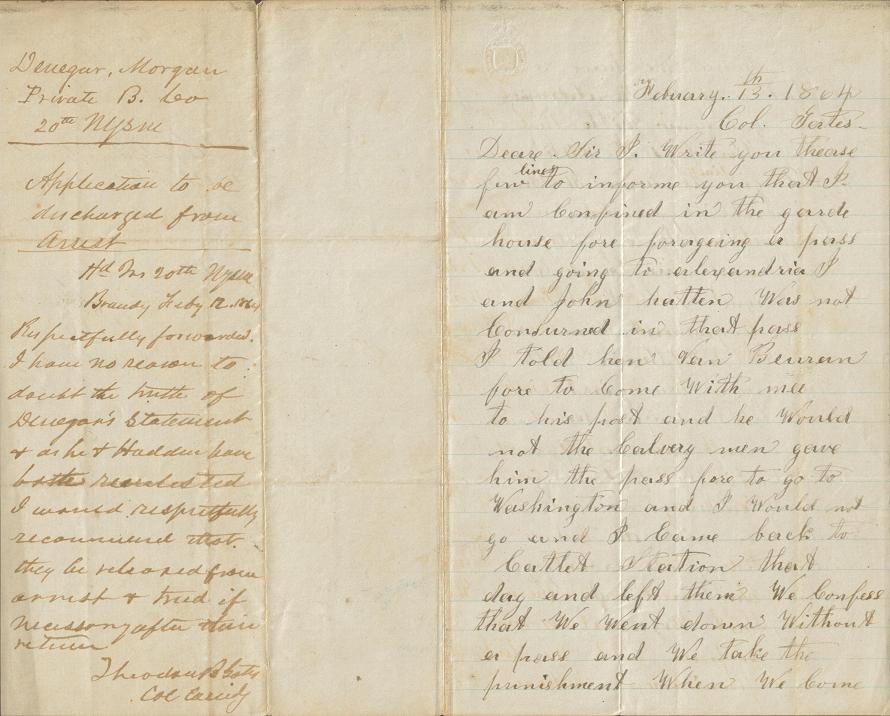 Denegar, Morgan
Private B. Co
20th NYSM
Application to be
discharged from
Arrest
Hd Qrs 20th NYSM
Brandy Feby 12. 1864
Respectfully forwarded.
I have no reason to
doubt the truth of
Denegar's Statement
& as he & Hadden have
both reenlisted
I would respectfully
recommend that
they be released from
arrest & tried if
necessary after their
return
Theodore B Gates
Col Comdg
February. 13th. 1864
Col. Gates.
Deare Sir I. Write you thease
few lines to informe you that I.
am Confined in the garde
house fore forargeing a pass
and going to alexandria I
and John hatten Was not
Consurned in that pass
I told hen Van Beuran
fore to Come With mee
to his post and he Would
not the Calvery men gave
him the pass fore to go to
Washington and I Would not
go and I Came back to
Catlet Station that
day and left them We Confess
that We Went down Without
a pass and We take the
punishment When We Come